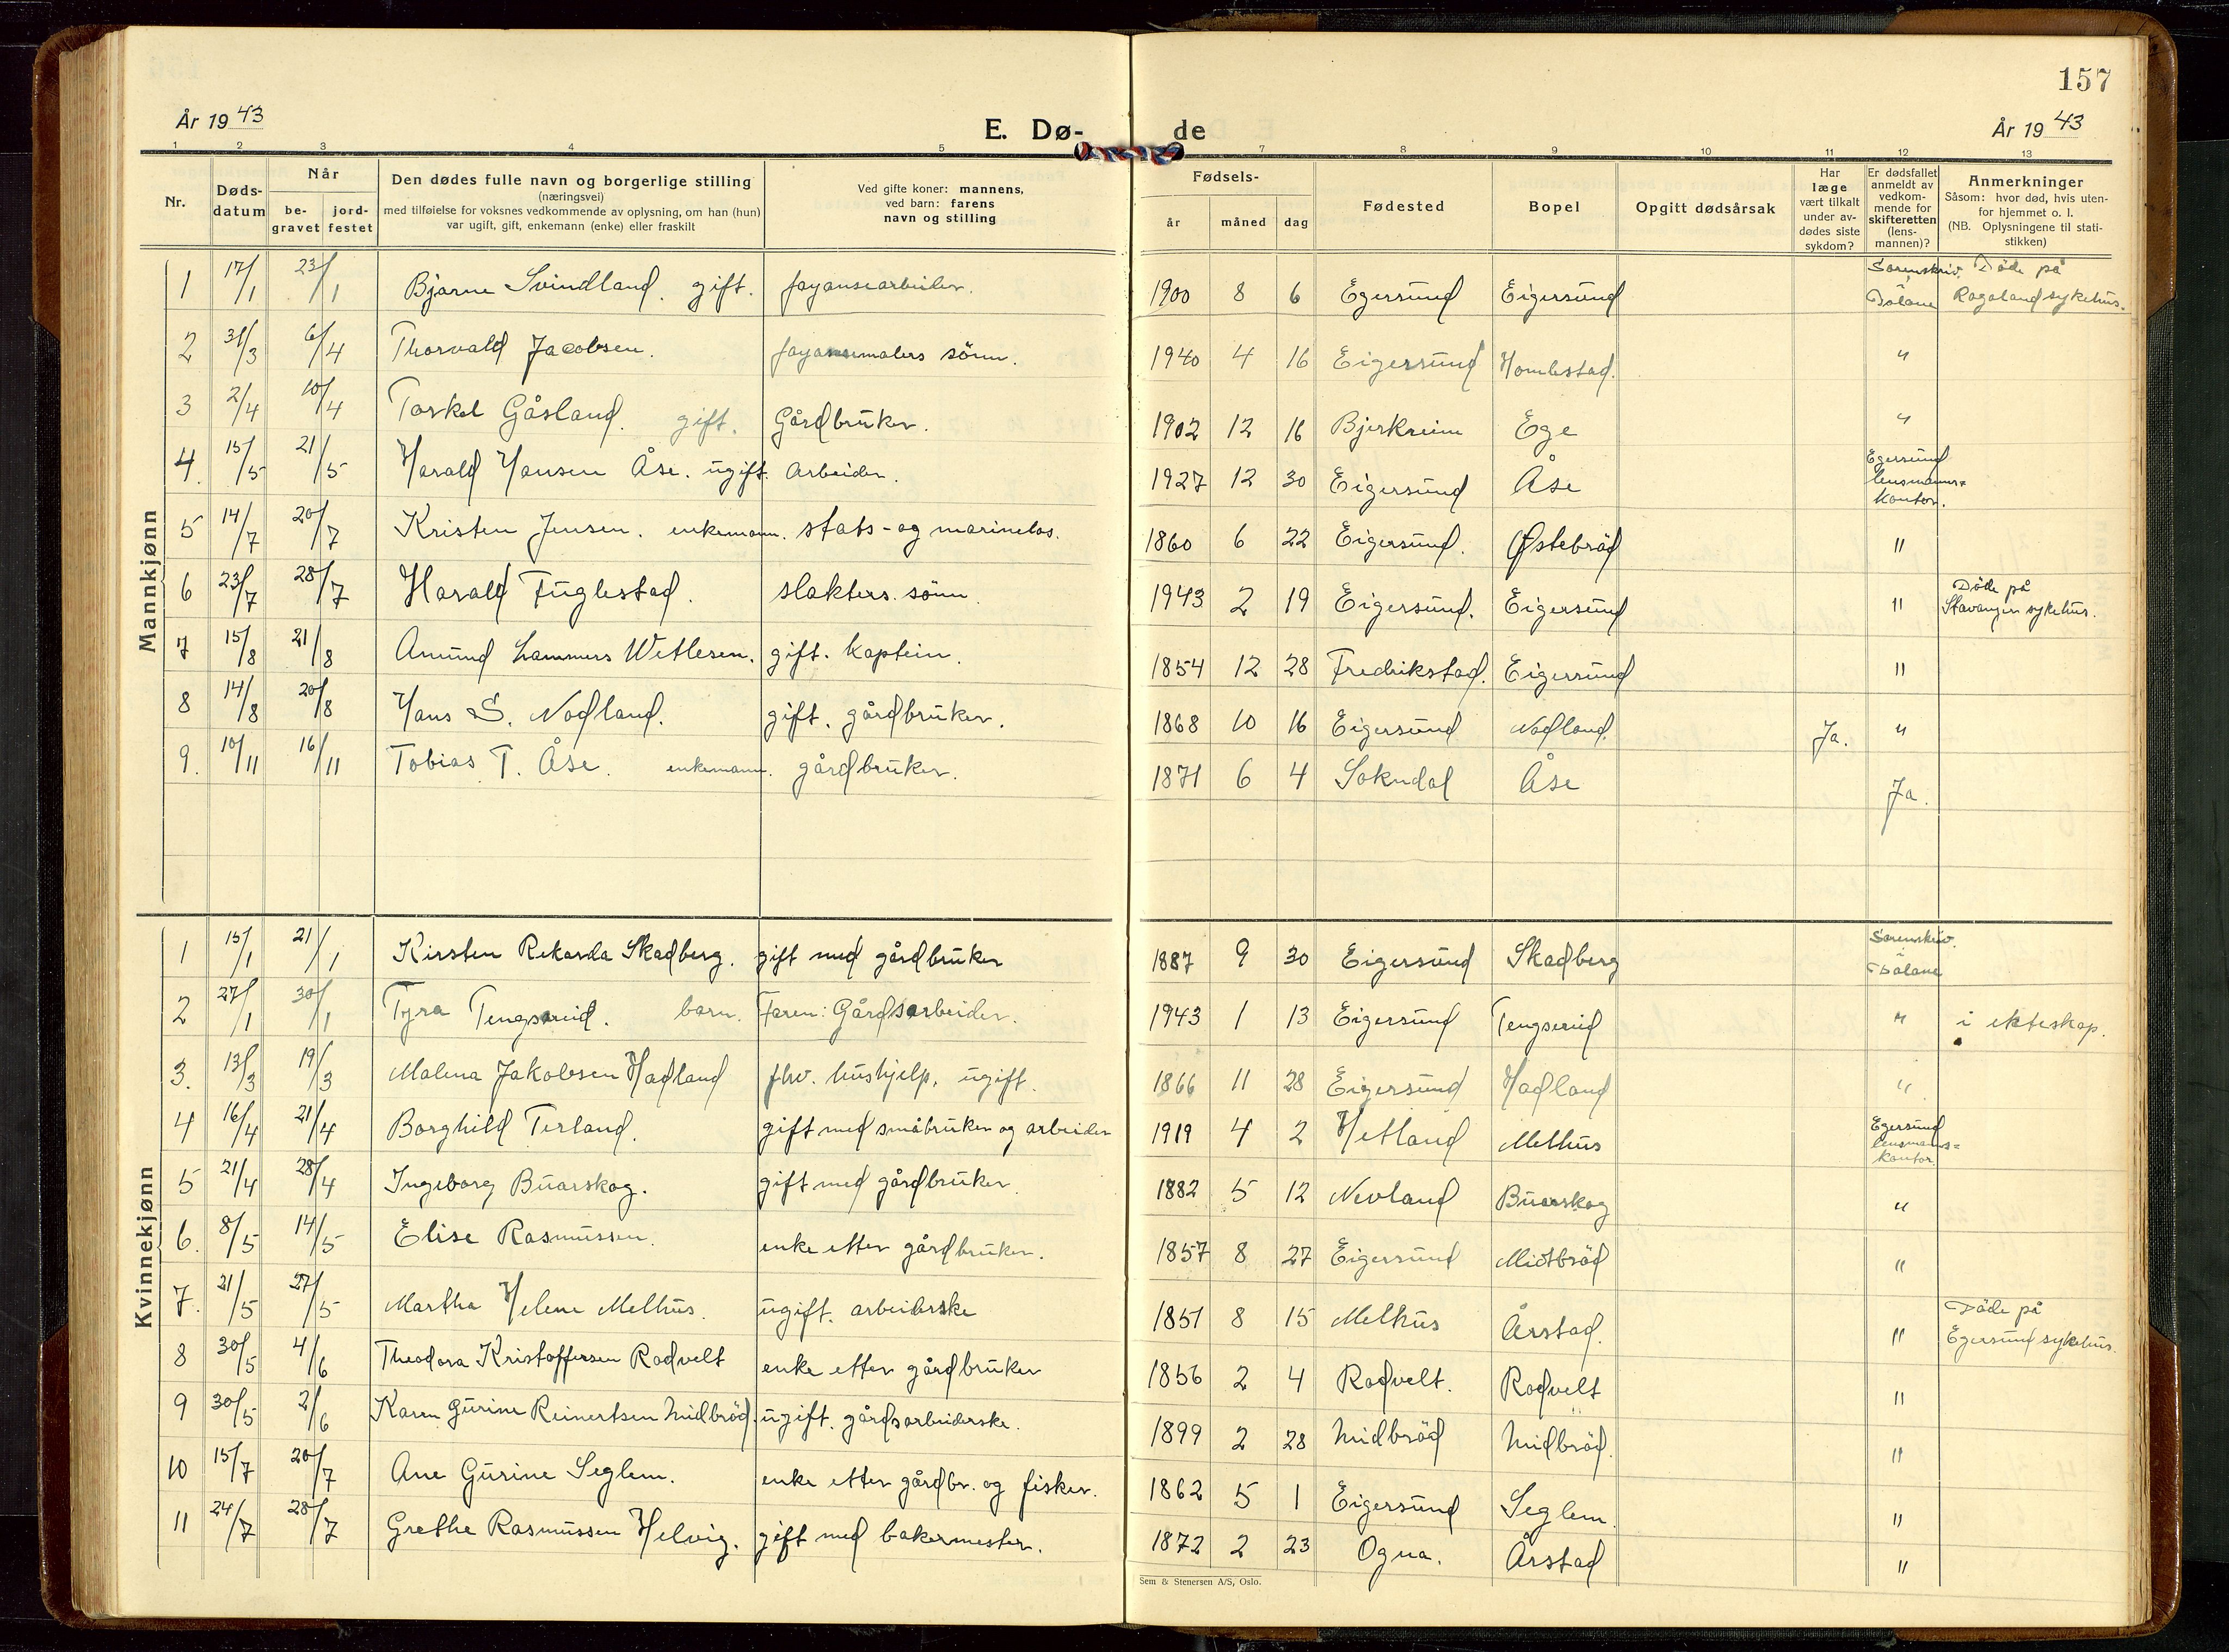 157
År 1943
E. Dø-
de
År 1943
1 2 3 4 5 7 8 9 10 11 12 13
Nr.
Døds-
datum
Når
be-
gravet
jord-
festet
Den dødes fulle navn og borgerlige stilling
(næringsvei)
med tilføielse for voksnes vedkommende av oplysning, om han (hun)
var ugift, gift, enkemann (enke) eller fraskilt
Ved gifte koner: mannens,
ved barn: farens
navn og stilling
Fødsels-
år måned dag
Fødested
Bopel
Opgitt dødsårsak
Har
læge
vært tilkalt
under av-
dødes siste
sykdom?
Er dødsfallet
anmeldt av
vedkom-
mende for
skifteretten
(lens-
mannen)?
Anmerkninger
Såsom: hvor død, hvis uten-
for hjemmet o. l.
(NB. Oplysningene til stati-
stikken)
Mannkjønn
1 17/1 23/1 Bjarne Svindland. gift. fayansearbeider. 1900 8 6 Egersund Eigersund Sorenskriv. Dalane Døde på Rogaland sykehus.
2 31/3 6/4 Thorvald Jacobsen. fayansemalers sönn. 1940 4 16 Eigersund Homlestad. "
3 2/4 10/4 Torkel Gåsland. gift. Gårdbruker. 1902 12 16 Bjerkreim Ege "
4. 15/5 21/5 Harald Hansen Åse. ugift. Arbeider. 1927 12 30 Eigersund Åse Egersund lensmanns= kontor.
5 14/7 20/7 Kristen Jensen. enkemann. stats- og marinelos. 1860 6 22 Eigersund. Østebröd "
6 23/7 28/7 Harald Fuglestad. slakters sönn. 1943 2 19 Eigersund. Eigersund " Döde på Stavanger sykehus.
7 15/8 21/8 Amund Lammers Wetlesen. gift. kaptein. 1854 12 28 Fredrikstad. Eigersund "
8 14/8 20/8 Hans S. Nodland. gift. gårdbruker. 1868 10 16 Eigersund Nodland. Ja. "
9. 10/11 16/11 Tobias T. Åse. enkemann. gårdbruker. 1871 6 4 Sokndal Åse Ja.
Kvinnekjønn
1 15/1 21/1 Kirsten Rekarda Skadberg. gift med gårdbruker 1887 9 30 Eigersund Skadberg Sorenskriv. Dalane
2 27/1 30/1 Tyra Tengsareid. barn. Faren: Gårdsarbeider. 1943 1 13 Eigersund Tengsereid " i ekteskap.
3. 13/3 19/3 Malena Jakobsen Hadland fhv. hushjelp, ugift. 1866 11 28 Eigersund Hadland "
4 16/4 21/4 Borghild Terland. gift med småbruker og arbeider 1919 4 2 Hetland Melhus Egersund lensmanns= kontor.
5 21/4 28/4 Ingeborg Buarskog. gift med gårdbruker. 1882 5 12 Nevland Buarskog "
6. 8/5 14/5 Elise Rasmussen. enke etter gårdbruker. 1857 8 27 Eigersund Midtbröd "
7. 21/5 27/5 Martha Helene Melhus. ugift. arbeiderske 1851 8 15 Melhus Årstad. " Döde på Egersund sykehus.
8 30/5 4/6 Theodora Kristoffersen Rodvelt enke etter gårdbruker 1856 2 4 Rodvelt. Rodvelt "
9 30/5 2/6 Karen Gurine Reinertsen Midbröd. ugift. gårdsarbeiderske. 1899 2 28 Midbröd Midbröd. "
10 15/7 20/7 Ane Gurine Seglem. enke etter gårdbr. og fisker. 1862 5 1 Eigersund Seglem. "
11 24/7 28/7 Grethe Rasmussen Helvig. gift med bakermester. 1872 2 23 Ogna. Årstad "
Sem & Stenersen A/S, Oslo.